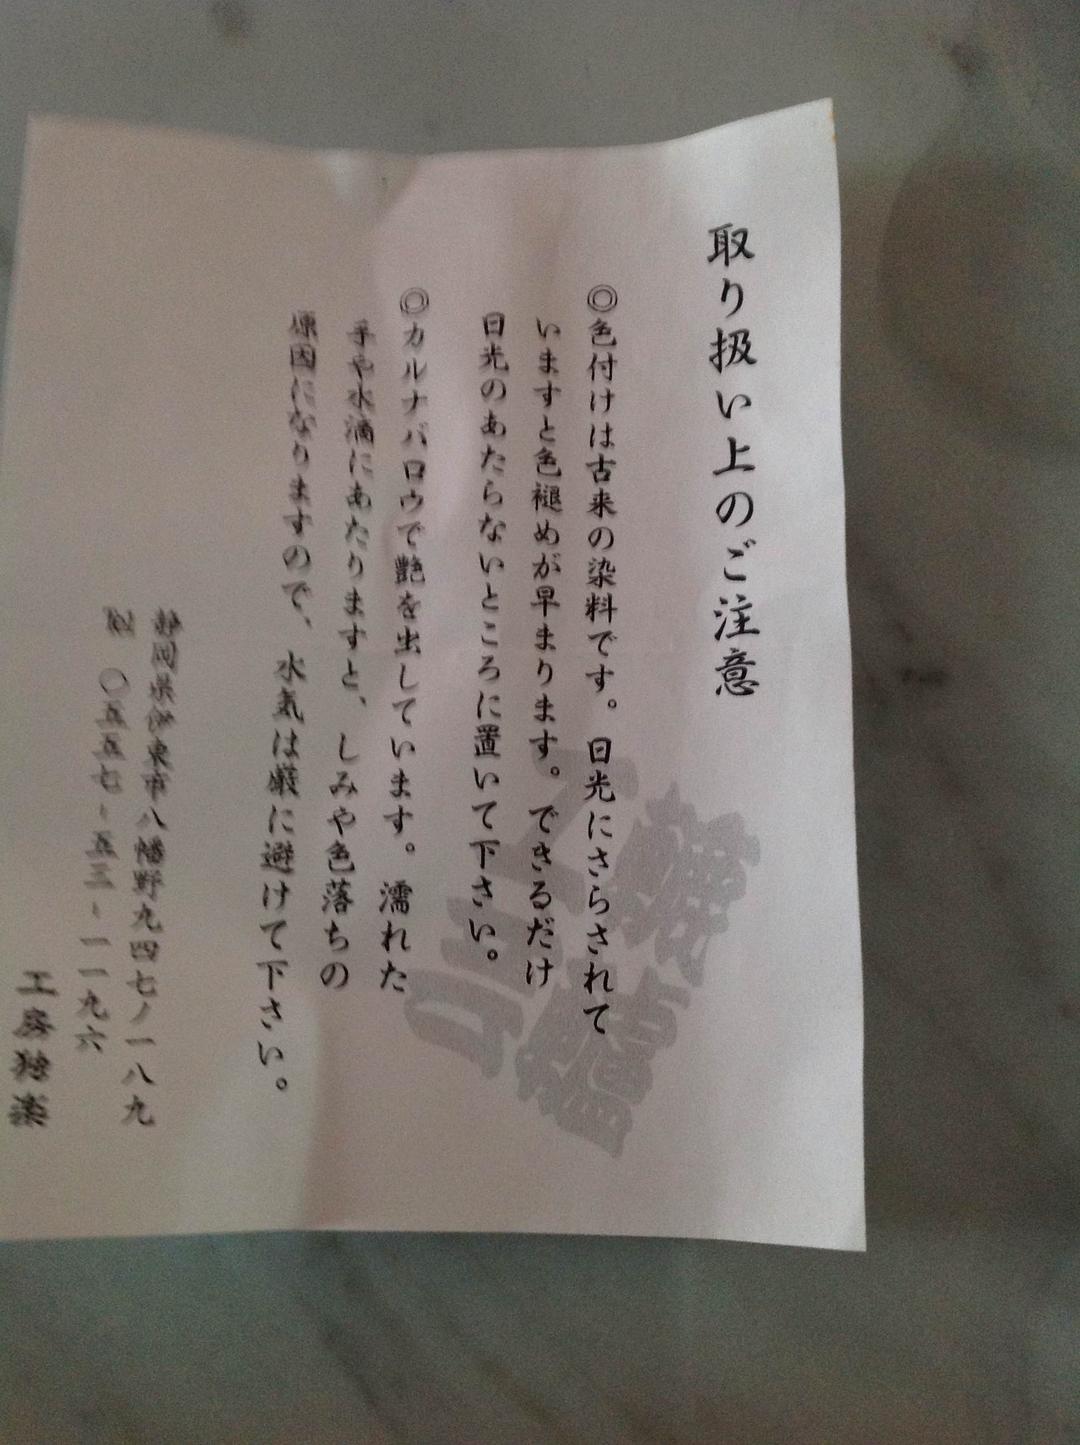 取り扱い上のご注意
◎色付けは古来の染料です。日光にさらされて
いますと色褪めが早まります。できるだけ
日光のあたらないところに置いて下さい。
◎カルナバロウで艶を出しています。濡れた
手や水滴にあたりますと、しみや色落ちの
原因になりますので、水気は厳に避けて下さい。
静岡県伊東市八幡野九四七ノ一八九
℡ 〇五五七-五三-一一九六
工房独楽